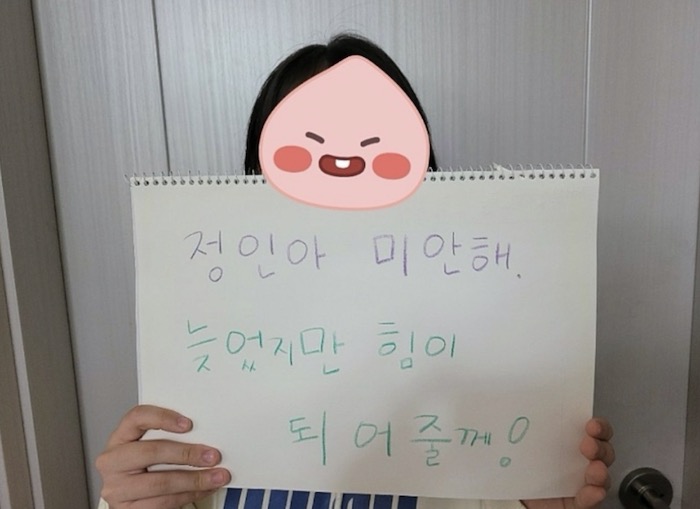 정인아 미안해.
늦었지만 힘이
되어줄께!